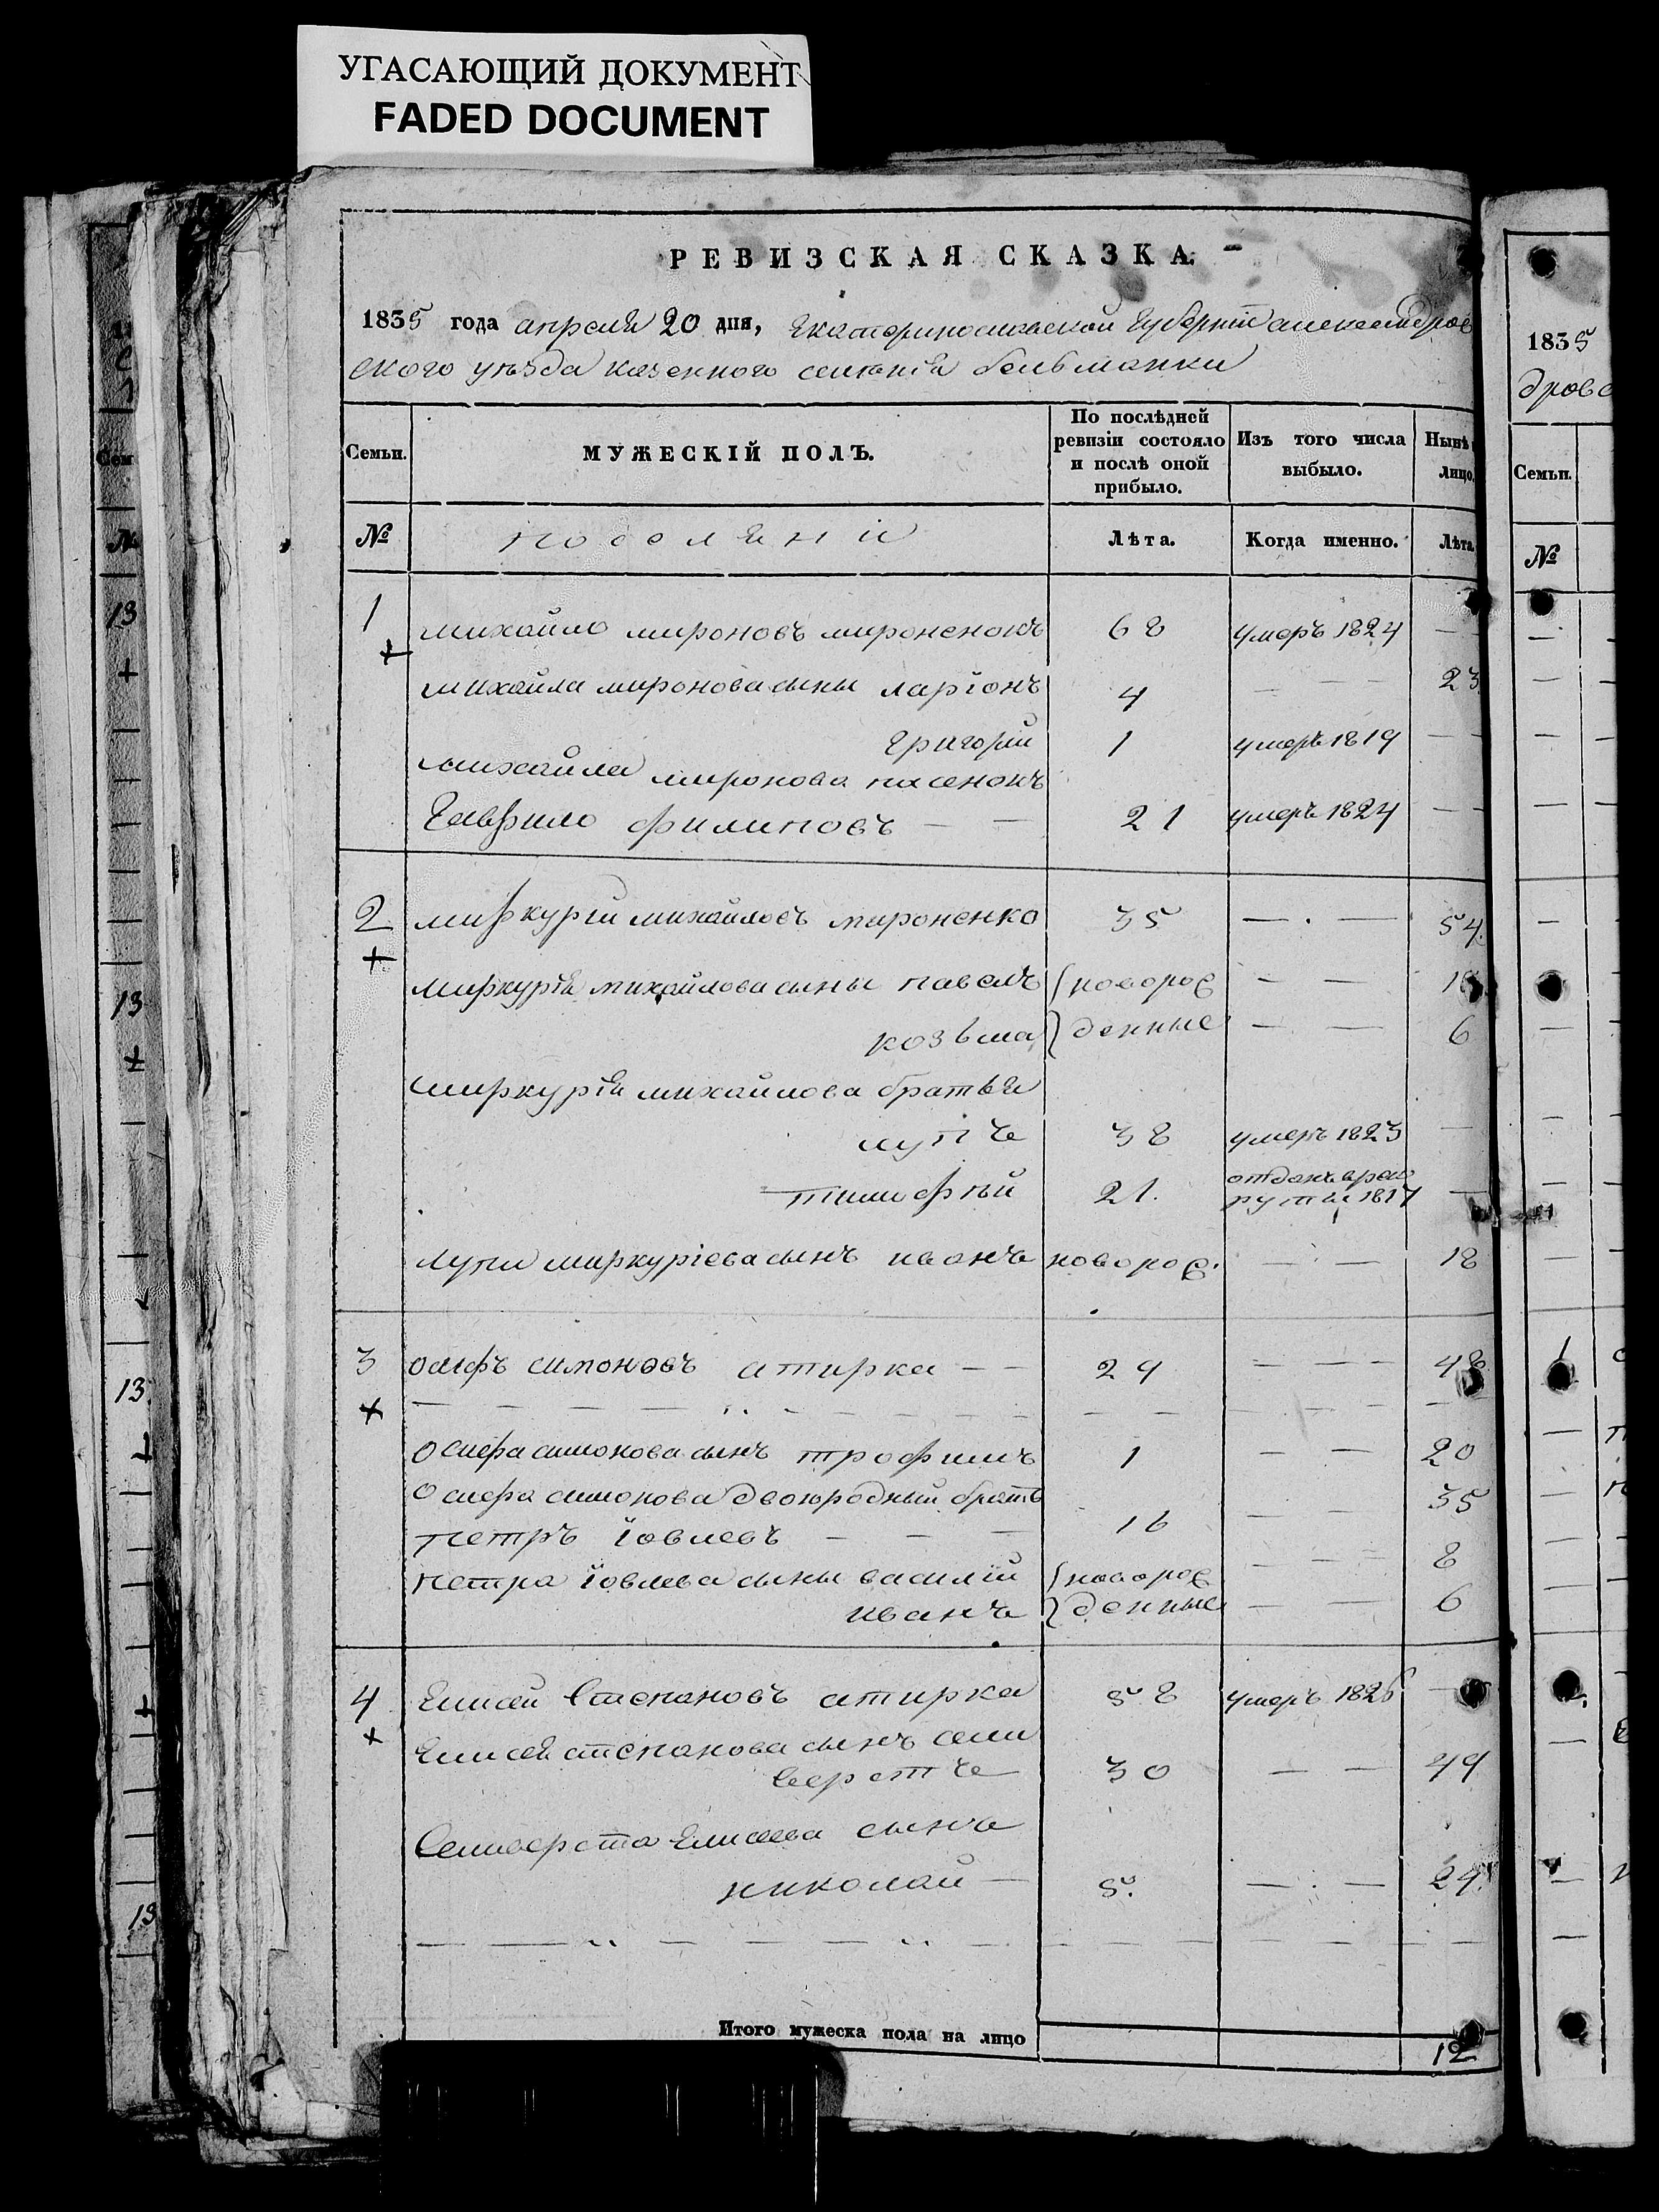 УГАСАЮЩИЙ ДОКУМЕНТ
FADED DOCUMENT
РЕВИЗСКАЯ СКАЗКА.
1835 года апреля 20 дня, Екатеринославской Губернїи александров
ского уѣзда казенного селенїя бельманки
Семьи. МУЖЕСКІЙ ПОЛЪ. По послѣдней ревизіи состояло и послѣ оной прибыло. Изъ того числа выбыло. Нынѣ лицо.
№ поселяни Лѣта. Когда именно. Лѣта.
1 михайло мироновъ мироненокъ 68 умеръ 1824 —
михайла миронова сыны ларїонъ 4 — — 23
григорій 1 умеръ 1819 —
михайла миронова пасенокъ
Гаврило филиповъ — — 21 умеръ 1824 —
2 миркурій михайловъ мироненко 35 — . — 54.
миркурїя михайлова сыны павелъ новорож — —
козьма денные — — 6
миркурїя михайлова братья
лупъ 38 умеръ 1823 —
тимофѣй 21. отданъ врек руты 1817 —
лупи миркурїева сынъ иванъ новорож. — . — 18
3 осифъ симоновъ атирка — — 29 — — — 48
осифа симонова сынъ трофимъ 1 — — 20
осифа симонова двоюродный братъ
петръ їовлевъ — — — 16 — — 35
петра їовлева сыны василїй новорож — — 8
иванъ денные — — 6
4 Елисей Степановъ атирка 58 умеръ 1826 —
Елисея степанова сынъ сели
верстъ 30 — — 49
Селиверста Елисеева сынъ
николай — 5. — . — 24.
Итого мужеска пола на лицо 12
1835
дровс
Семьи.
№
13
13
13
13